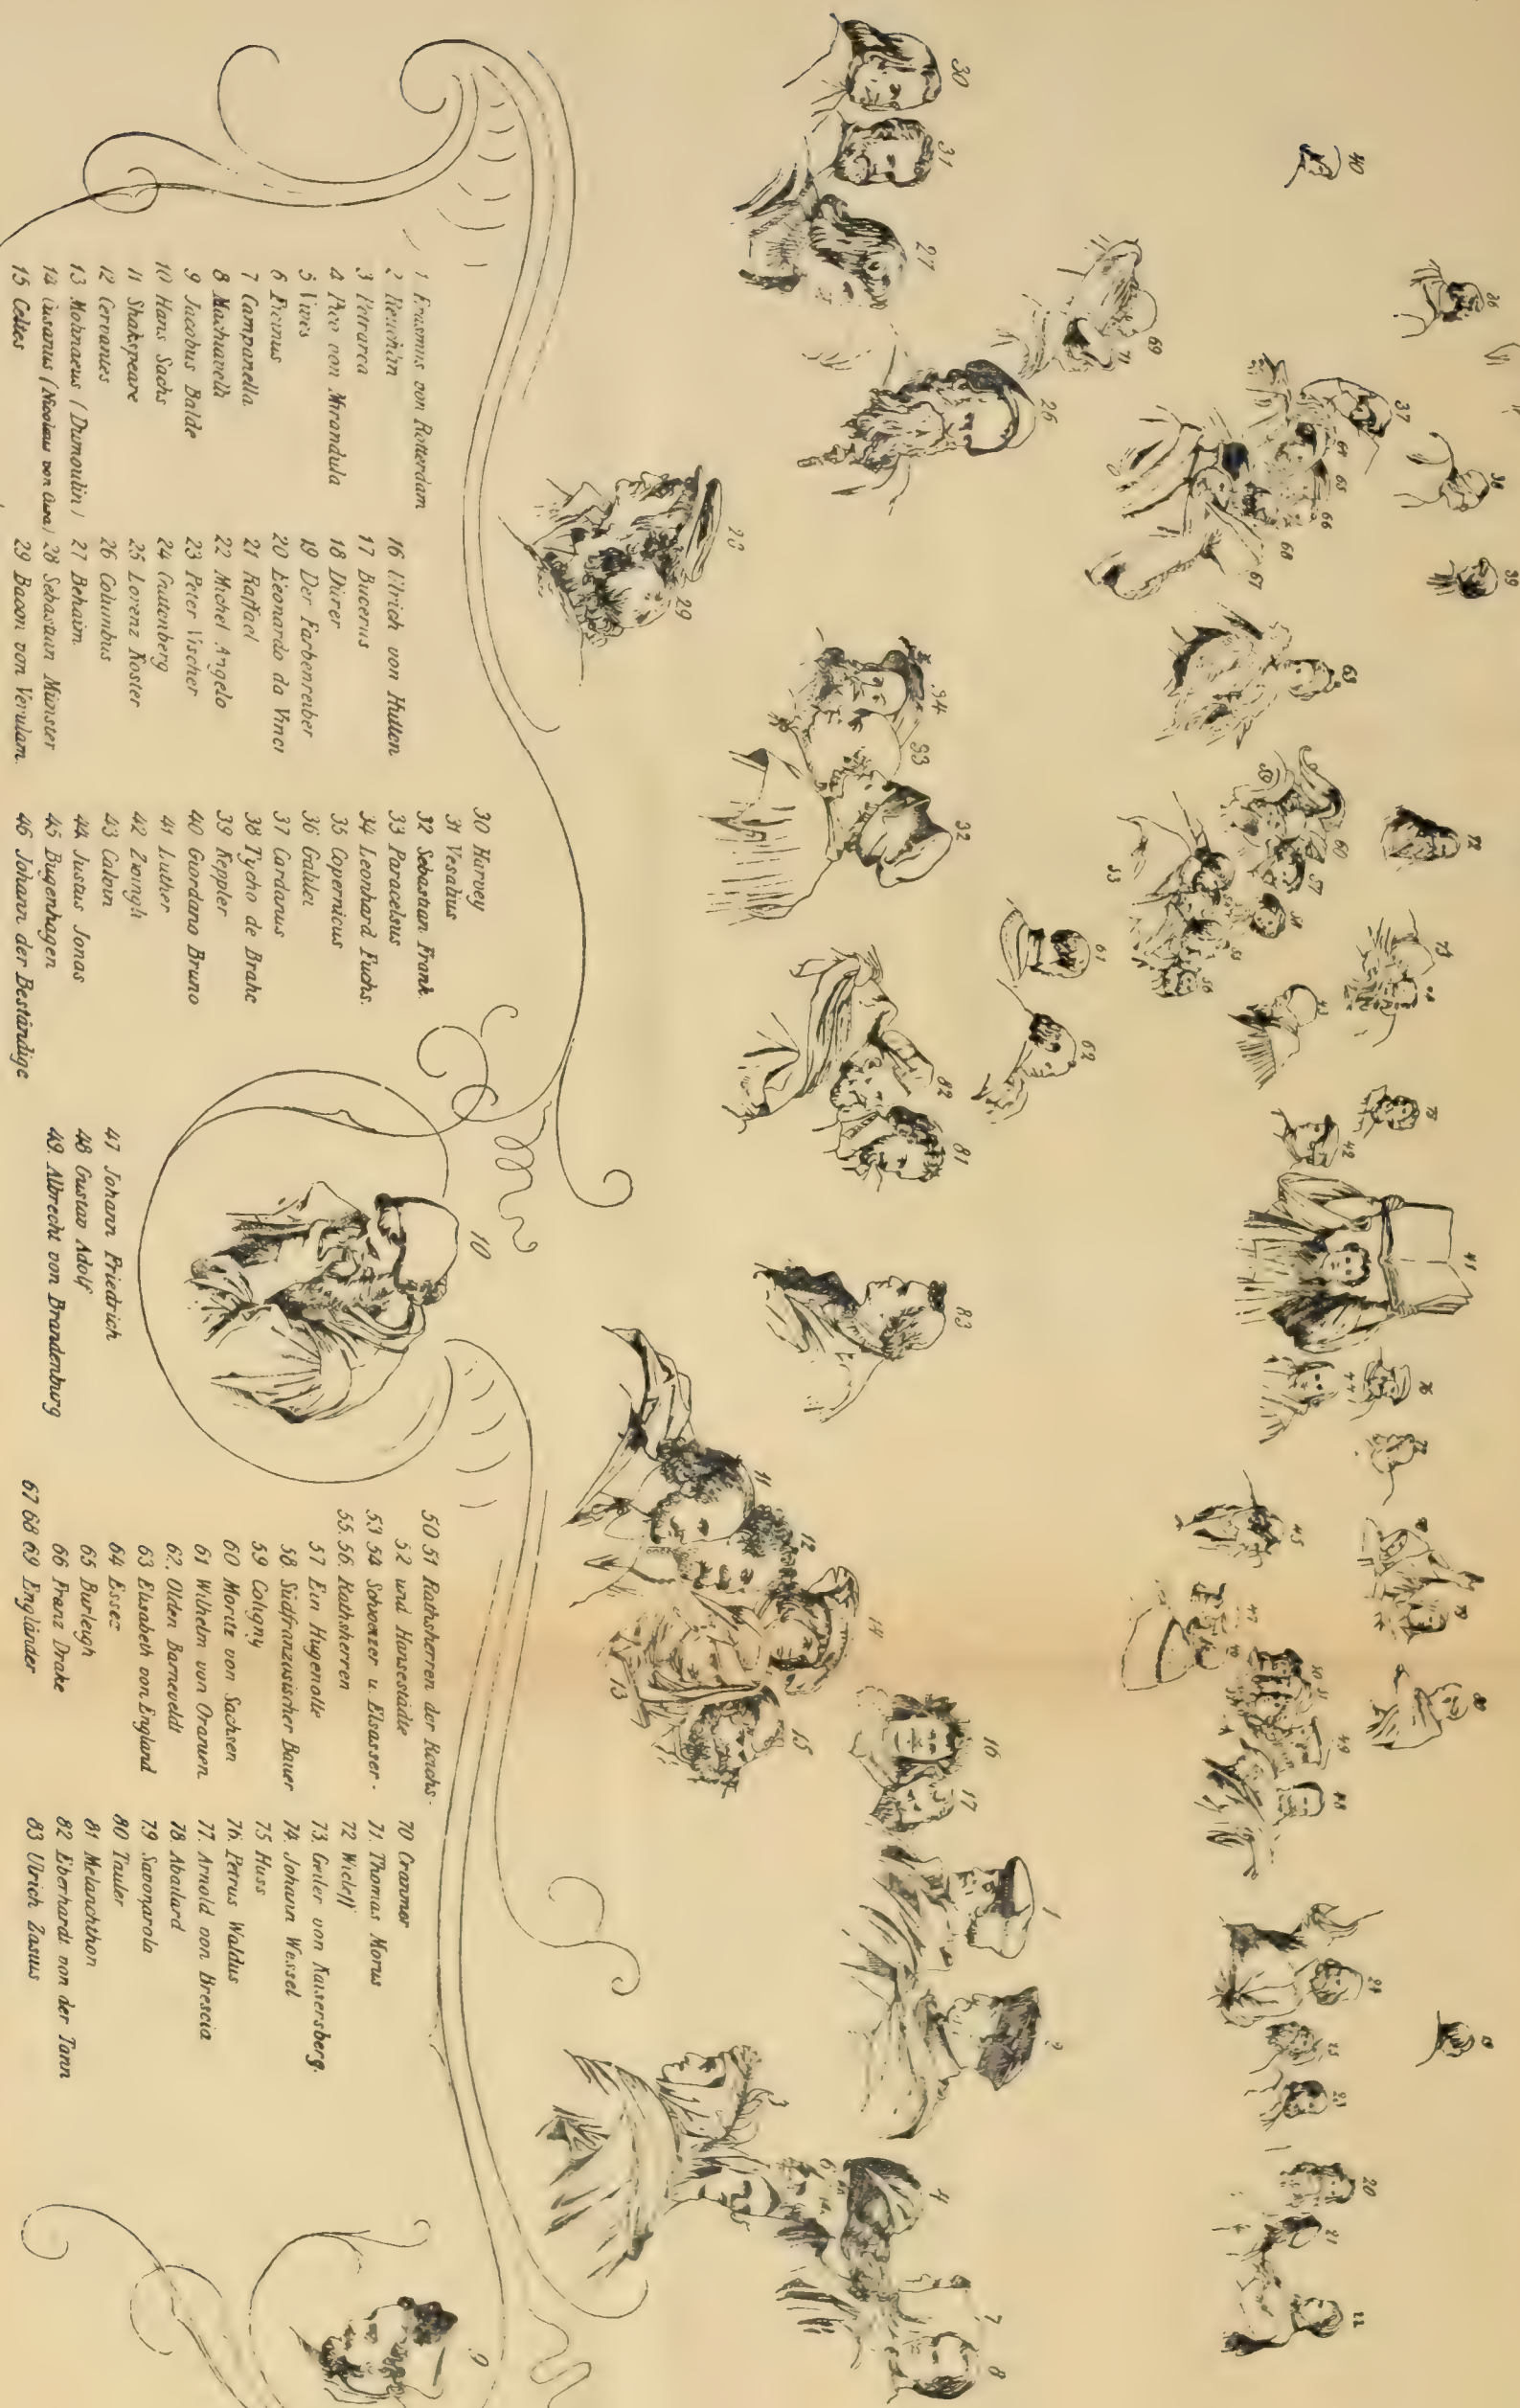 1 Erasmus von Rotterdam
2 Reuchlin
3 Petrarca
4 Pico von Mirandula
5 Vives
6 Ficinus
7 Campanella
8 Machiavelli
9 Jacobus Balde
10 Hans Sachs
11 Shakspeare
12 Cervantes
13 Molinaeus (Dumoulin)
14 Cusanus (Nicolaus von Cusa)
15 Celtes
16 Ulrich von Hutten
17 Bucerus
18 Dürer
19 Der Farbenreiber
20 Leonardo da Vinci
21 Raffael
22 Michel Angelo
23 Peter Vischer
24 Guttenberg
25 Lorenz Koster
26 Columbus
27 Behaim
28 Sebastian Münster
29 Bacon von Verulam.
30 Harvey
31 Vesalius
32 Sebastian Frank
33 Paracelsus
34 Leonhard Fuchs.
35 Copernicus
36 Galilei
37 Cardanus
38 Tycho de Brahe
39 Keppler
40 Giordano Bruno
41 Luther
42 Zwingli
43 Calvin
44 Justus Jonas
45 Bugenhagen
46 Johann der Beständige
47 Johann Friedrich
48 Gustav Adolf
49. Albrecht von Brandenburg
50 51 Rathsherren der Reichs-
52 und Hansestädte
53 54 Schweizer u. Elsasser-
55. 56. Rathsherren
57 Ein Hugenotte
58 Südfranzösischer Bauer
59 Coligny
60 Moritz von Sachsen
61 Wilhelm von Oranien
62. Olden Barneveldt
63 Elisabeth von England
64 Essex
65 Burleigh
66 Franz Drake
67 68 69 Engländer
70 Cranmer
71. Thomas Morus
72 Wicleff
73. Geiler von Kaisersberg.
74. Johann Wessel
75 Huss
76. Petrus Waldus
77. Arnold von Brescia
78 Abailard
79 Savonarola
80 Tauler
81 Melanchthon
82 Eberhardt von der Tann
83 Ulrich Zasius